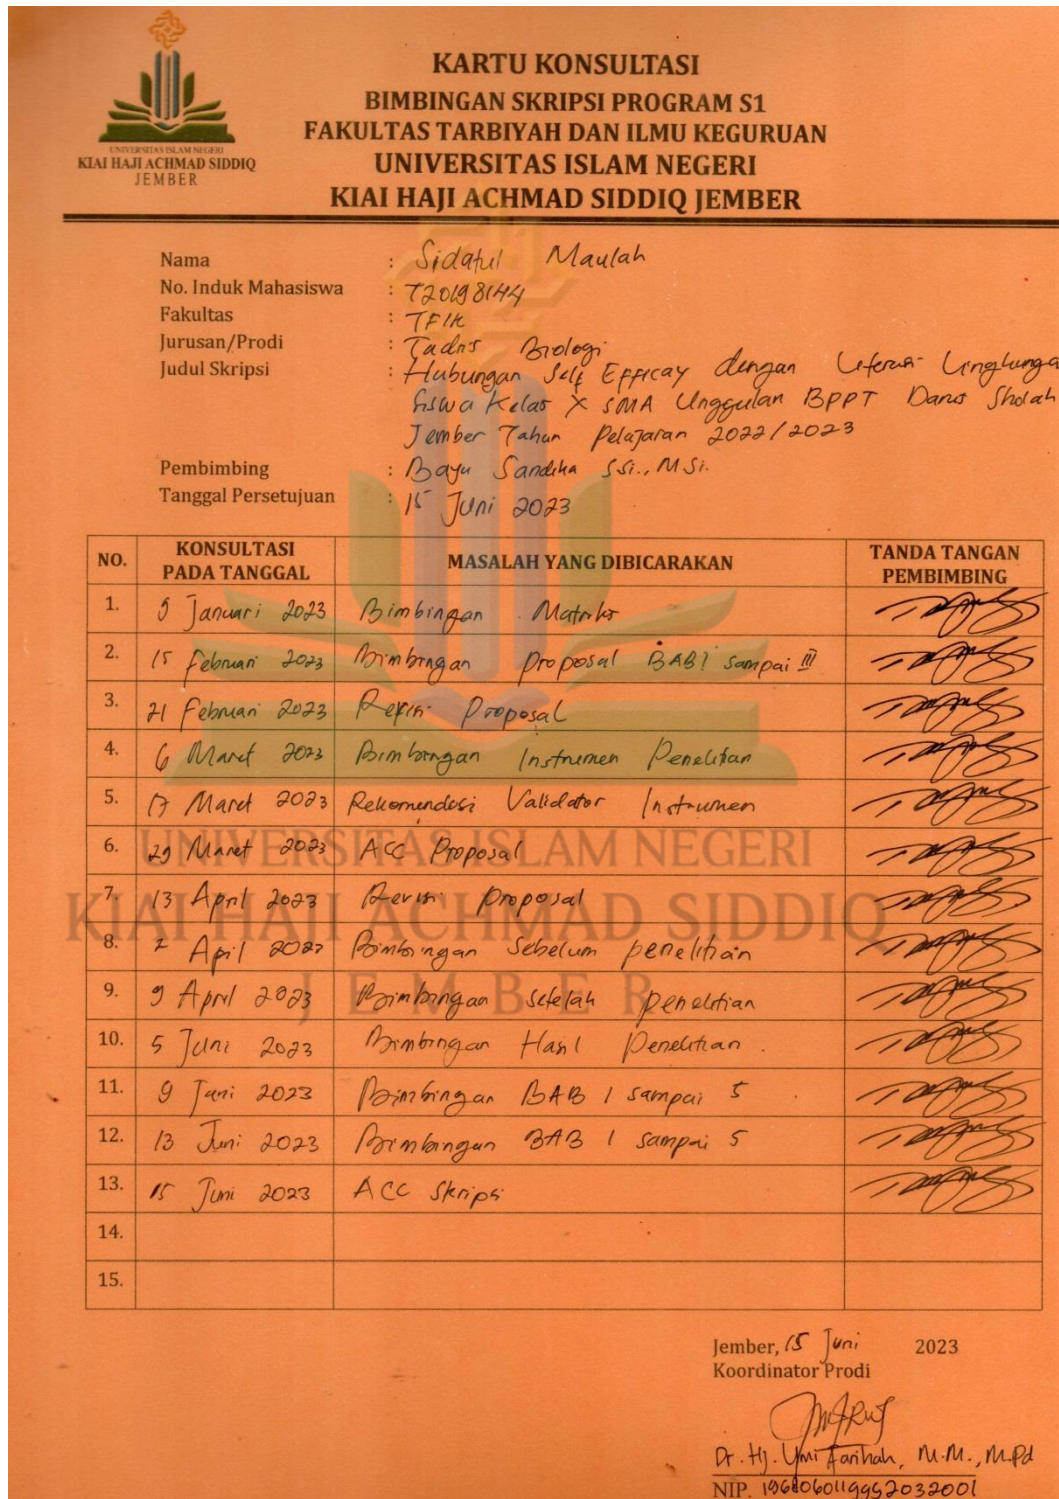 UNIVERSITAS ISLAM NEGERI
KIAI HAJI ACHMAD SIDDIQ
JEMBER
KARTU KONSULTASI
BIMBINGAN SKRIPSI PROGRAM S1
FAKULTAS TARBIYAH DAN ILMU KEGURUAN
UNIVERSITAS ISLAM NEGERI
KIAI HAJI ACHMAD SIDDIQ JEMBER
Nama : Sidatul Maulah
No. Induk Mahasiswa : T20198144
Fakultas : TFIK
Jurusan/Prodi : Tadris Biologi
Judul Skripsi : Hubungan Self Efficay dengan Literasi Lingkunga
Siswa Kelas X SMA Unggulan BPPT Darus Sholah
Jember Tahun Pelajaran 2022/2023
Pembimbing : Bayu Sandika S.Si., M.Si.
Tanggal Persetujuan : 15 Juni 2023
NO. KONSULTASI PADA TANGGAL MASALAH YANG DIBICARAKAN TANDA TANGAN PEMBIMBING
1. Januari 2023 Bimbingan Matriks
2. 15 Februari 2023 Bimbingan proposal BAB I sampai III
3. 21 Februari 2023 Refisi Proposal
4. 6 Maret 2023 Bimbingan Instrumen Penelitian
5. 17 Maret 2023 Rekomendasi Validator Instrumen
6. 29 Maret 2023 ACC Proposal
7. 13 April 2023 Revisi proposal
8. April 2023 Bimbingan sebelum penelitian
9. 9 April 2023 Bimbingan setelah penelitian
10. 5 Juni 2023 Bimbingan Hasil Penelitian.
11. 9 Juni 2023 Bimbingan BAB 1 sampai 5
12. 13 Juni 2023 Bimbingan BAB 1 sampai 5
13. 15 Juni 2023 ACC Skripsi
14.
15.
UNIVERSITAS ISLAM NEGERI
KIAI HAJI ACHMAD SIDDIQ
JEMBER
Jember, 15 Juni 2023
Koordinator Prodi
Dr. Hj. Umi Farihah, M.M., M.Pd
NIP. 196806011992032001